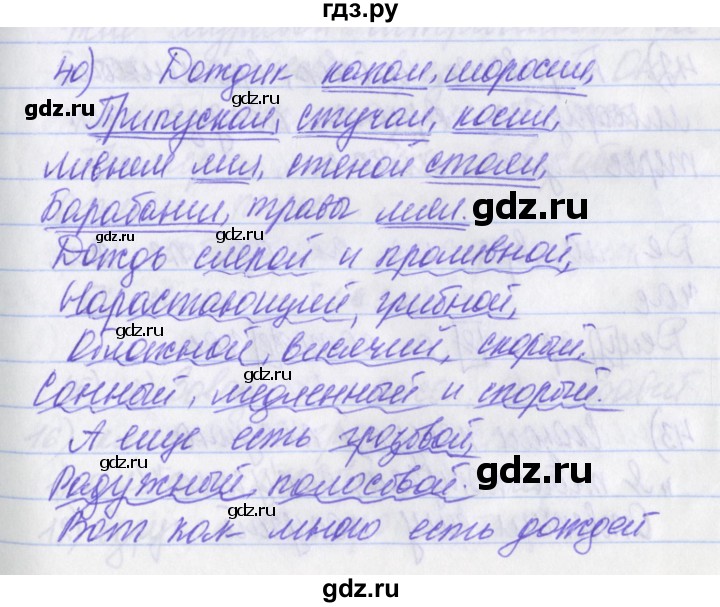 гдз.ру
40) Дождик капал, моросил,
Припускал, стучал, косил,
ливнем лил, стеной стоял,
Барабанил, травы мял.
Дождь слепой и проливной,
Нарастающий, грибной,
Обложной, висячий, скорый.
Сонный, медленный и спорый.
А еще есть грозовой,
Радужный, полосовой.
Вот как много есть дождей
gdz.ru
gdz.ru
gdz.ru
gdz.ru
gdz.ru
gdz.ru
gdz.ru
gdz.ru
gdz.ru
gdz.ru
gdz.ru
gdz.ru
gdz.ru
gdz.ru